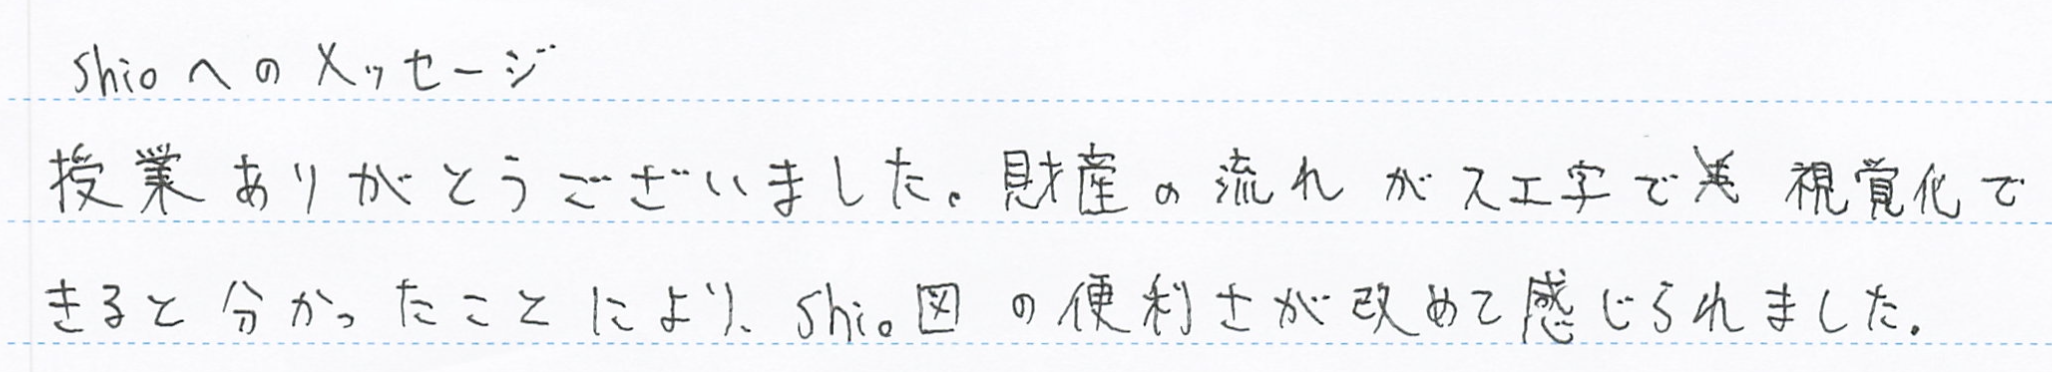 shioへのメッセージ
授業ありがとうございました。財産の流れがス工字で視覚化で
きると分かったことにより、shio図の便利さが改めて感じられました。